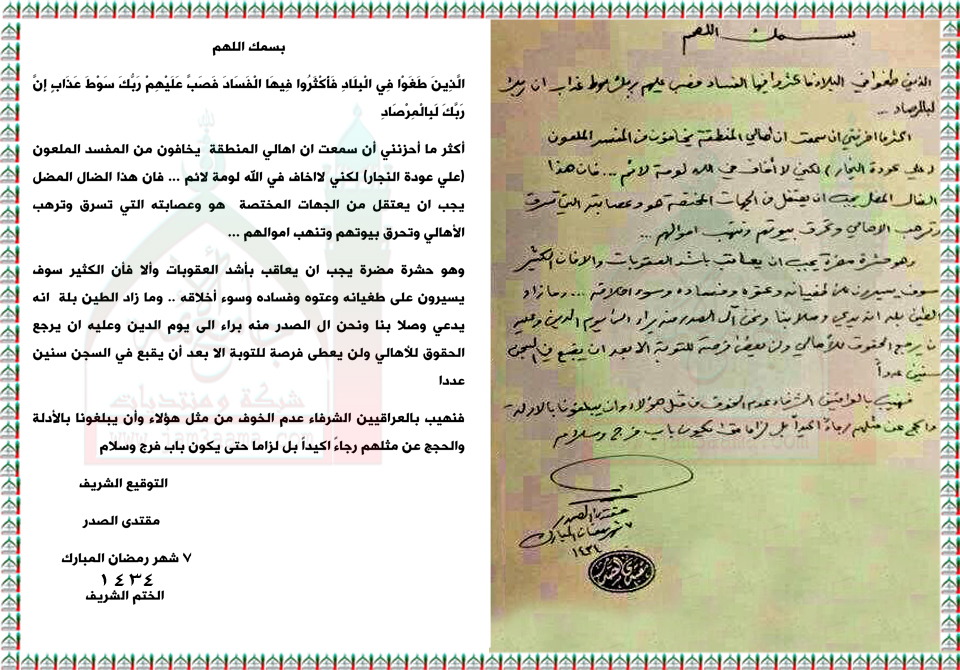 بسمك اللهم
الَّذِينَ طَغَوْا فِي الْبِلَادِ فَأَكْثَرُوا فِيهَا الْفَسَادَ فَصَبَّ عَلَيْهِمْ رَبُّكَ سَوْطَ عَذَابٍ إِنَّ
رَبَّكَ لَبِالْمِرْصَادِ
أكثر ما أحزنني أن سمعت ان اهالي المنطقة يخافون من المفسد الملعون
(علي عودة النجار) لكني لااخاف في الله لومة لائم ... فان هذا الضال المضل
يجب ان يعتقل من الجهات المختصة هو وعصابته التي تسرق وترهب
الأهالي وتحرق بيوتهم وتنهب اموالهم ...
وهو حشرة مضرة يجب ان يعاقب بأشد العقوبات وألا فأن الكثير سوف
يسيرون على طغيانه وعتوه وفساده وسوء أخلاقه .. وما زاد الطين بلة انه
يدعي وصلا بنا ونحن ال الصدر منه براء الى يوم الدين وعليه ان يرجع
الحقوق للأهالي ولن يعطى فرصة للتوبة الا بعد أن يقبع في السجن سنين
عددا
فنهيب بالعراقيين الشرفاء عدم الخوف من مثل هؤلاء وأن يبلغونا بالأدلة
والحجج عن مثلهم رجاءً اكيداً بل لزاما حتى يكون باب فرج وسلام
التوقيع الشريف
مقتدى الصدر
٧ شهر رمضان المبارك
١٤٣٤
الختم الشريف
بسمك اللهم
الذين طغوا في البلاد فأكثروا فيها الفساد فصب عليهم ربك سوط عذاب ان ربك
لبالمرصاد ...
اكثر ما احزنني ان سمعت ان اهالي المنطقة يخافون من المفسد الملعون
(علي عودة النجار) لكني لا أخاف في الله لومة لائم ... فان هذا
الضال المضل يجب ان يعتقل من الجهات المختصة هو وعصابته التي تسرق
وترهب الاهالي وتحرق بيوتهم وتنهب اموالهم ...
وهو حشرة مضرة يجب ان يعاقب باشد العقوبات والا فان الكثير
سوف يسيرون على طغيانه وعتوه وفساده وسوء اخلاقه ... وما زاد
الطين بله انه يدعي وصلا بنا ونحن آل الصدر منه براء الى يوم الدين وعليه
ان يرجع الحقوق للأهالي ولن يعطى فرصة للتوبة الا بعد ان يقبع في السجن
سنين عدداً
فنهيب بالعراقيين الشرفاء عدم الخوف من مثل هؤلاء وان يبلغونا بالادلة
والحجج عن مثلهم رجاءً اكيداً بل لزاما حتى يكون باب فرج وسلام
مقتدى الصدر
٧ شهر رمضان المبارك
١٤٣٤
شبكة ومنتديات